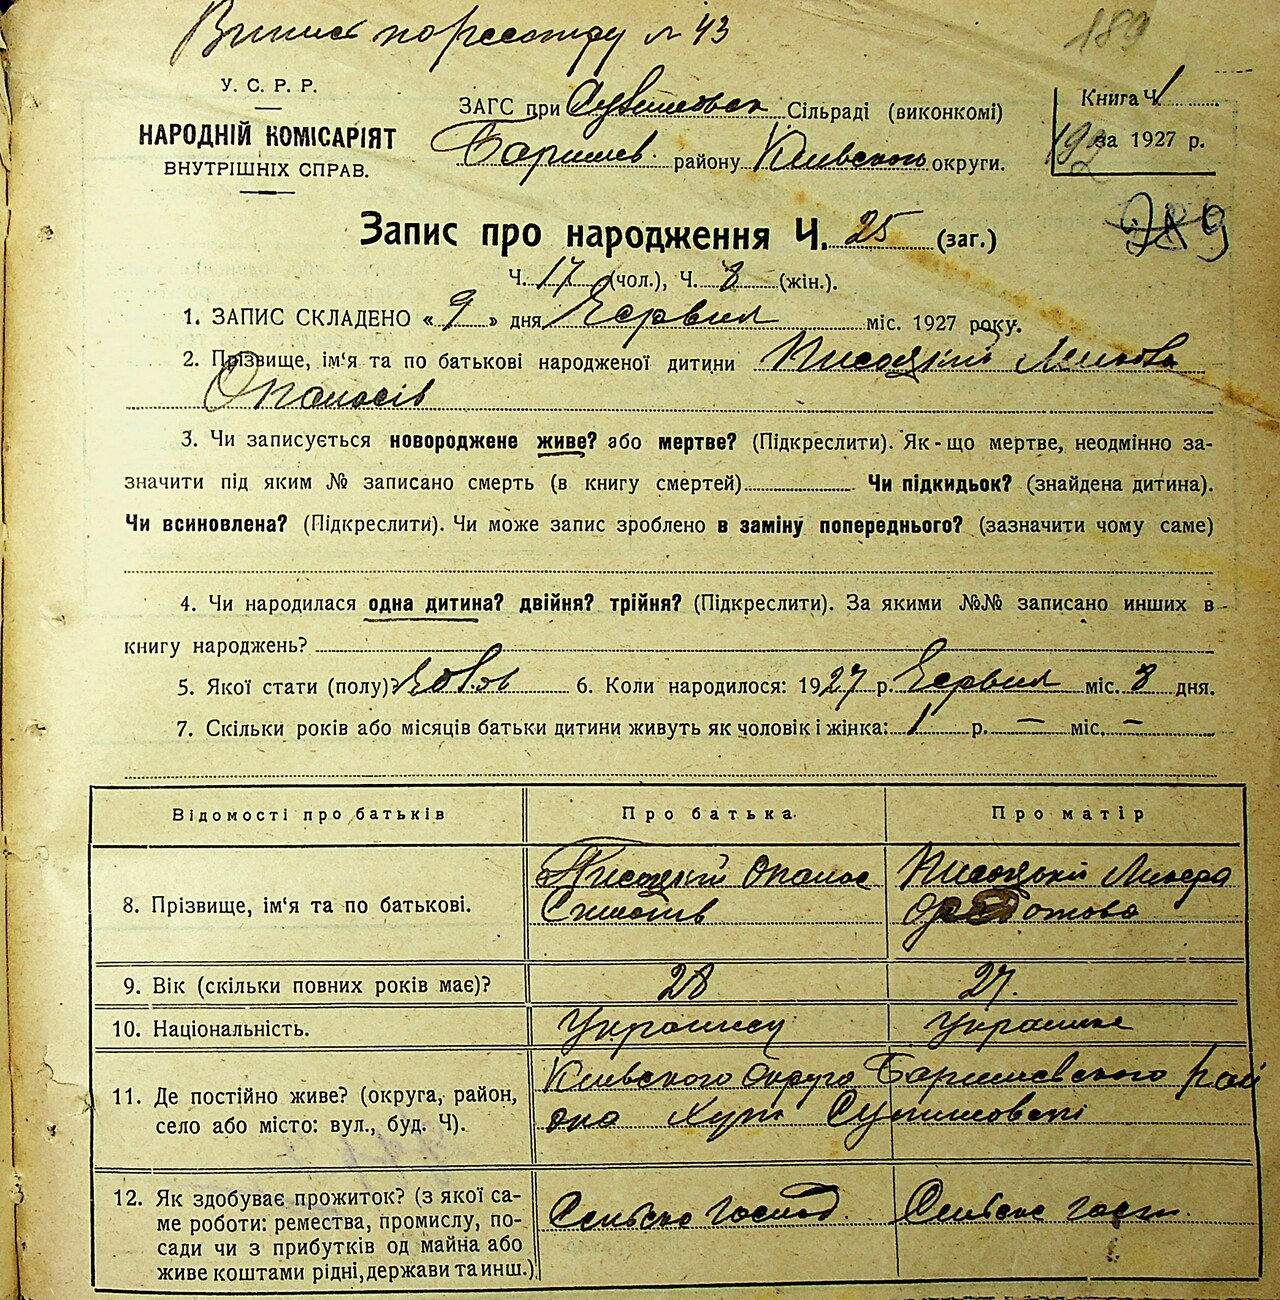 по реєстру № 43
189
У. С. Р. Р.
НАРОДНІЙ КОМІСАРІЯТ
ВНУТРІШНІХ СПРАВ.
ЗАГС при Сільраді (виконкомі)
Баришев. району Київського округи.
Книга Ч. 1
за 1927 р.
192
289
Запис про народження Ч. 25 (заг.)
Ч. 17 (чол.), Ч. 8 (жін.).
1. ЗАПИС СКЛАДЕНО « 9 » дня Червня міс. 1927 року.
2. Прізвище, ім'я та по батькові народженої дитини
Опанасів
3. Чи записується новороджене живе? або мертве? (Підкреслити). Як-що мертве, неодмінно за-
значити під яким № записано смерть (в книгу смертей) Чи підкидьок? (знайдена дитина).
Чи всиновлена? (Підкреслити). Чи може запис зроблено в заміну попереднього? (зазначити чому саме)
4. Чи народилася одна дитина? двійня? трійня? (Підкреслити). За якими №№ записано инших в
книгу народжень?
5. Якої стати (полу)? 6. Коли народилося: 1927 р. Червня міс. 8 дня.
7. Скільки років або місяців батьки дитини живуть як чоловік і жінка: 1 р. — міс. —
Відомості про батьків Про батька Про матір
8. Прізвище, ім'я та по батькові. Опанас
9. Вік (скільки повних років має)? 28 27.
10. Національність. Українец Украинка
11. Де постійно живе? (округа, район, село або місто: вул., буд. Ч). Київского округа Баришевского рай
она Хут.
12. Як здобуває прожиток? (з якої са-
ме роботи: ремества, промислу, по-
сади чи з прибутків од майна або
живе коштами рідні, держави та инш.) Сельске господ. Сельске госп.